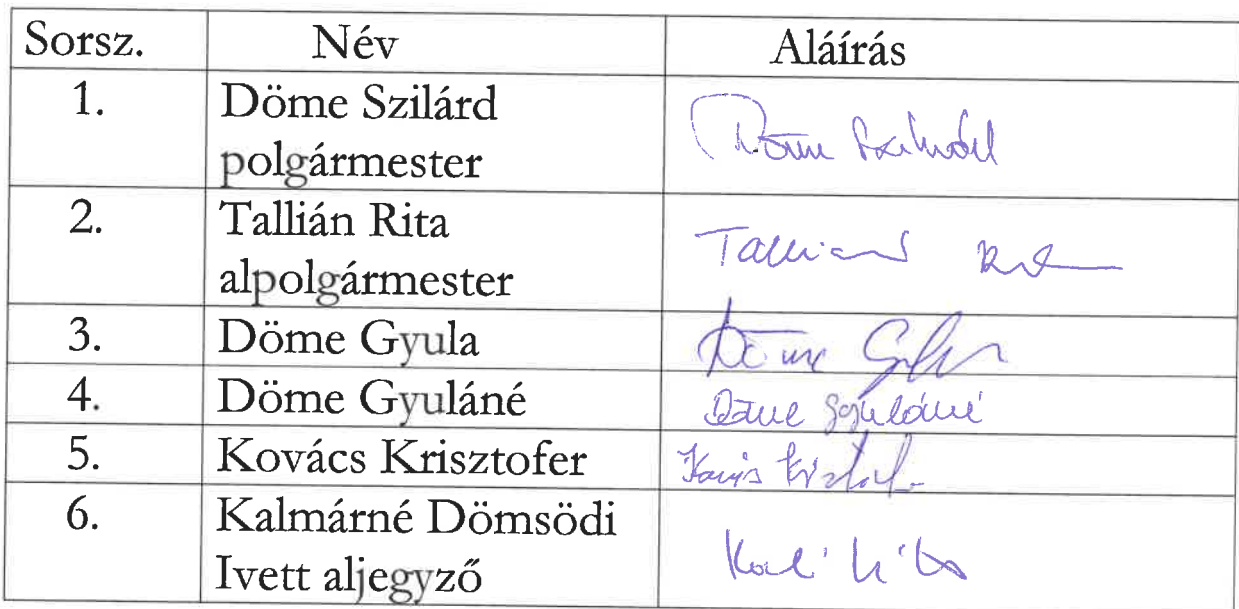 Sorsz. Név Aláírás
1. Döme Szilárd
polgármester
Döme Szilárd
2. Tallián Rita
alpolgármester
Tallián Rita
3. Döme Gyula Döme Gyula
4. Döme Gyuláné Döme Gyuláné
5. Kovács Krisztofer
6. Kalmárné Dömsödi
Ivett aljegyző